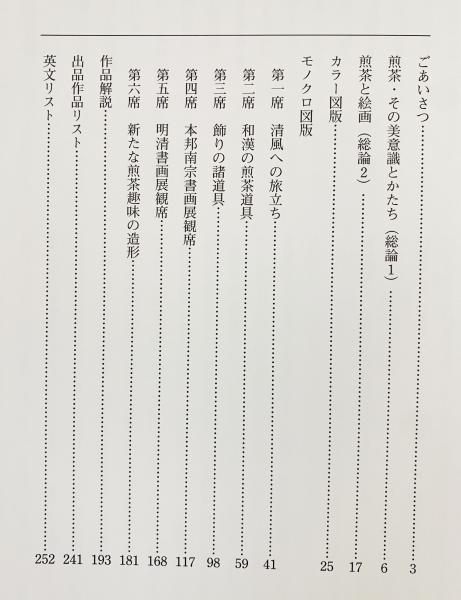 ごあいさつ……3
煎茶・その美意識とかたち（総論1）……6
煎茶と絵画（総論2）……17
カラー図版……25
モノクロ図版
第一席　清風への旅立ち……41
第二席　和漢の煎茶道具……59
第三席　飾りの諸道具……98
第四席　本邦南宗書画展観席……117
第五席　明清書画展観席……168
第六席　新たな煎茶趣味の造形……181
作品解説……193
出品作品リスト……241
英文リスト……252